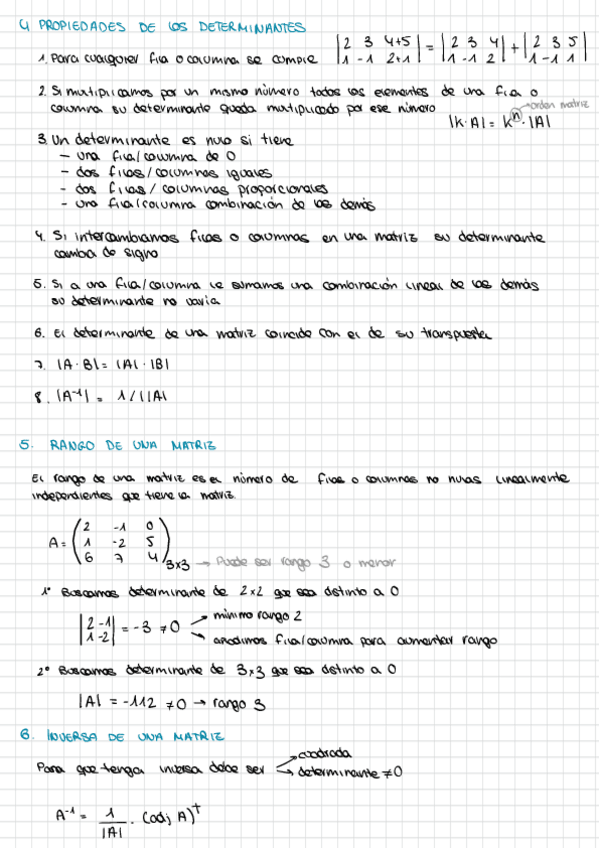 4 PROPIEDADES DE LOS DETERMINANTES
1. Para cualquier fila o columna se cumple |2 3 4+5| = |2 3 4| + |2 3 5|
|1 -1 2+1| |1 -1 2| |1 -1 1|
2. Si multiplicamos por un mismo número todos los elementos de una fila o
columna su determinante queda multiplicado por ese número
→ orden matriz
|K·A| = Kⁿ·|A|
3. Un determinante es nulo si tiene
- una fila/columna de 0
- dos filas/columnas iguales
- dos filas/columnas proporcionales
- una fila/columna combinación de las demás
4. Si intercambiamos filas o columnas en una matriz su determinante
cambia de signo
5. Si a una fila/columna le sumamos una combinación lineal de las demás
su determinante no varía
6. El determinante de una matriz coincide con el de su transpuesta
7. |A·B| = |A|·|B|
8. |A⁻¹| = 1/||A|
5. RANGO DE UNA MATRIZ
El rango de una matriz es el número de filas o columnas no nulas linealmente
independientes que tiene la matriz.
2 -1 0
A = 1 -2 5
6 7 4 3x3 → Puede ser rango 3 o menor
1º Buscamos determinante de 2x2 que sea distinto a 0
|2 -1| = -3 ≠ 0 → mínimo rango 2
|1 -2| → añadimos fila/columna para aumentar rango
2º Buscamos determinante de 3x3 que sea distinto a 0
|A| = -112 ≠ 0 → rango 3
6. INVERSA DE UNA MATRIZ
Para que tenga inversa debe ser → cuadrada
→ determinante ≠ 0
A⁻¹ = 1/|A| · (adj A)ᵗ